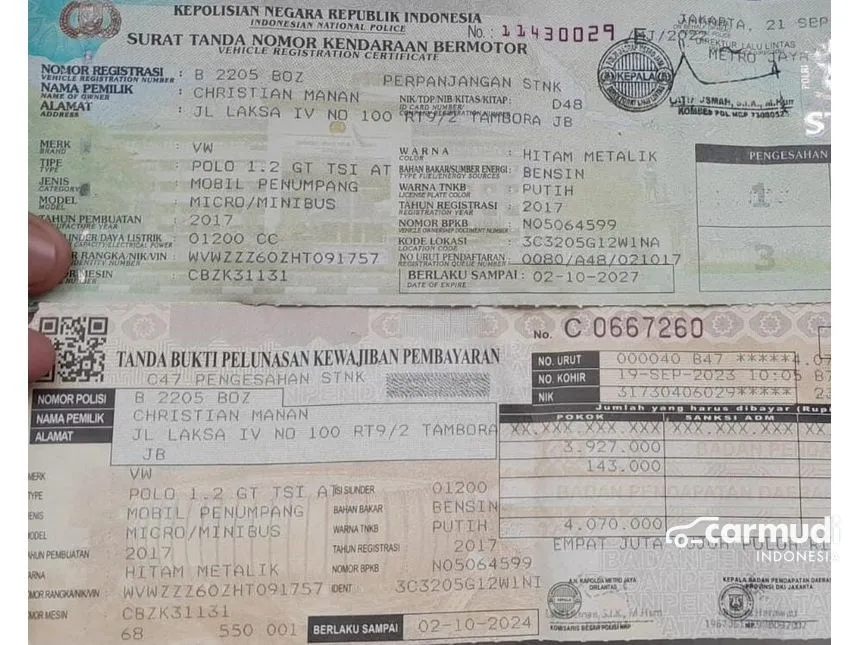 KEPOLISIAN NEGARA REPUBLIK INDONESIA
INDONESIAN NATIONAL POLICE
No.: 11430029 /MJ/2022
JAKARTA, 21 SEP
SURAT TANDA NOMOR KENDARAAN BERMOTOR
VEHICLE REGISTRATION CERTIFICATE
DIREKTUR LALU LINTAS
METRO JAYA
KEPALA
NOMOR REGISTRASI : B 2205 BOZ PERPANJANGAN STNK
VEHICLE REGISTRATION NUMBER
NAMA PEMILIK : CHRISTIAN MANAN NIK/TDP/NIB/KITAS/KITAP : D48
NAME OF OWNER ID CARD NUMBER/
COMPANY REGISTRATION NUMBER
ALAMAT : JL LAKSA IV NO 100 RT9/2 TAMBORA JB
ADDRESS
MERK : VW
BRAND
TIPE : POLO 1.2 GT TSI AT
TYPE
JENIS : MOBIL PENUMPANG
CATEGORY
MODEL : MICRO/MINIBUS
MODEL
TAHUN PEMBUATAN : 2017
DAYA LISTRIK : 01200 CC
RANGKA/NIK/VIN : WVWZZZ60ZHT091757
MESIN : CBZK31131
WARNA : HITAM METALIK
COLOR
BAHAN BAKAR/SUMBER ENERGI : BENSIN
TYPE FUEL/ENERGY SOURCES
WARNA TNKB : PUTIH
LICENSE PLATE COLOR
TAHUN REGISTRASI : 2017
REGISTRATION YEAR
NOMOR BPKB : N05064599
VEHICLE OWNERSHIP DOCUMENT NUMBER
KODE LOKASI : 3C3205G12W1NA
LOCATION CODE
NO URUT PENDAFTARAN : 0080/A48/021017
REGISTRATION QUEUE NUMBER
BERLAKU SAMPAI : 02-10-2027
DATE OF EXPIRE
PENGESAHAN
1
3
No. C 0667260
TANDA BUKTI PELUNASAN KEWAJIBAN PEMBAYARAN
C47 PENGESAHAN STNK
NO. URUT 000040 B47 *****4.07
NO. KOHIR 19-SEP-2023 10:05 B7
NIK 31730406029*****
NOMOR POLISI B 2205 BOZ
NAMA PEMILIK CHRISTIAN MANAN
ALAMAT JL LAKSA IV NO 100 RT9/2 TAMBORA
JB
Jumlah yang harus dibayar (Rupi
POKOK SANKSI ADM
XX.XXX.XXX XXX.XXX.XXX
3.927.000
143.000
4.070.000
EMPAT JUTA TUJUH PULUH RI
MERK VW
TYPE POLO 1.2 GT TSI AT
JENIS MOBIL PENUMPANG
MODEL MICRO/MINIBUS
TAHUN PEMBUATAN 2017
WARNA HITAM METALIK
NOMOR RANGKA/NIK/VIN WVWZZZ60ZHT091757
NOMOR MESIN CBZK31131
68 550 001
ISI SILINDER 01200
BAHAN BAKAR BENSIN
WARNA TNKB PUTIH
TAHUN REGISTRASI 2017
NOMOR BPKB N05064599
IDENT 3C3205G12W1NI
BERLAKU SAMPAI 02-10-2024
A.N. KAPOLDA METRO JAYA
DIRLANTAS
KOMISARIS BESAR POLISI NRP
KEPALA BADAN PENDAPATAN DAERAH
PROVINSI DKI JAKARTA
carmudi
INDONESIA